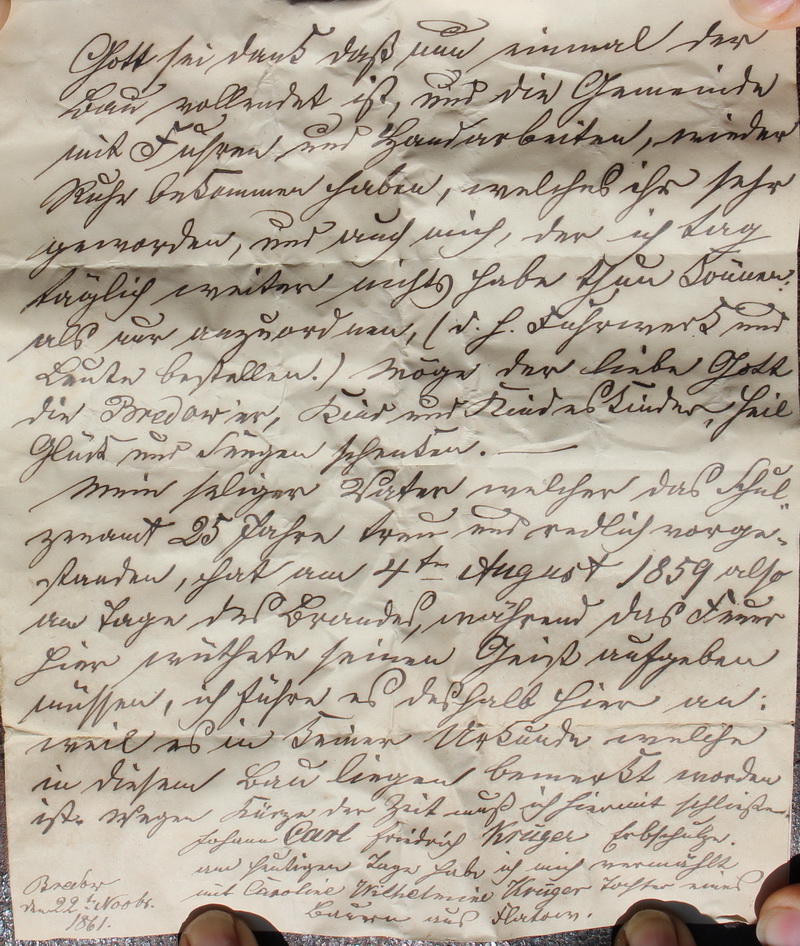 Gott sei dank daß nun einmal der
Bau vollendet ist, und die Gemeinde
mit Fuhren und Handarbeiten, wieder
Ruhe bekommen haben, welches ihr sehr
geworden, und auch mich, der ich tag
täglich weiter nichts habe thun können:
als nur anzuordnen, (d. h. Fuhrwerk und
Leute bestellen.) Möge der liebe Gott
die Bredow'er, Kind und Kindeskinder, Heil
Glück und Seegen schenken. —
Mein seliger Vater welcher das Schul„
zenamt 25 Jahre treu und redlich vorge„
standen, hat am 4ten August 1859 also
am Tage des Brandes, während das Feuer
hier wüthete seinen Geist aufgeben
müssen, ich führe es deshalb hier an:
weil es in keiner Urkunde welche
in diesem Bau liegen bemerkt worden
ist. Wegen Kürze der Zeit muß ich hiermit schließen.
Johann Carl Friedrich Krüger Erbschulze.
am heutigen Tage habe ich mich vermählt
mit Caroline Wilhelmine Krüger Tochter eines
Bauern aus Flatow.
Bredow
den 22ten Novbr.
1861.